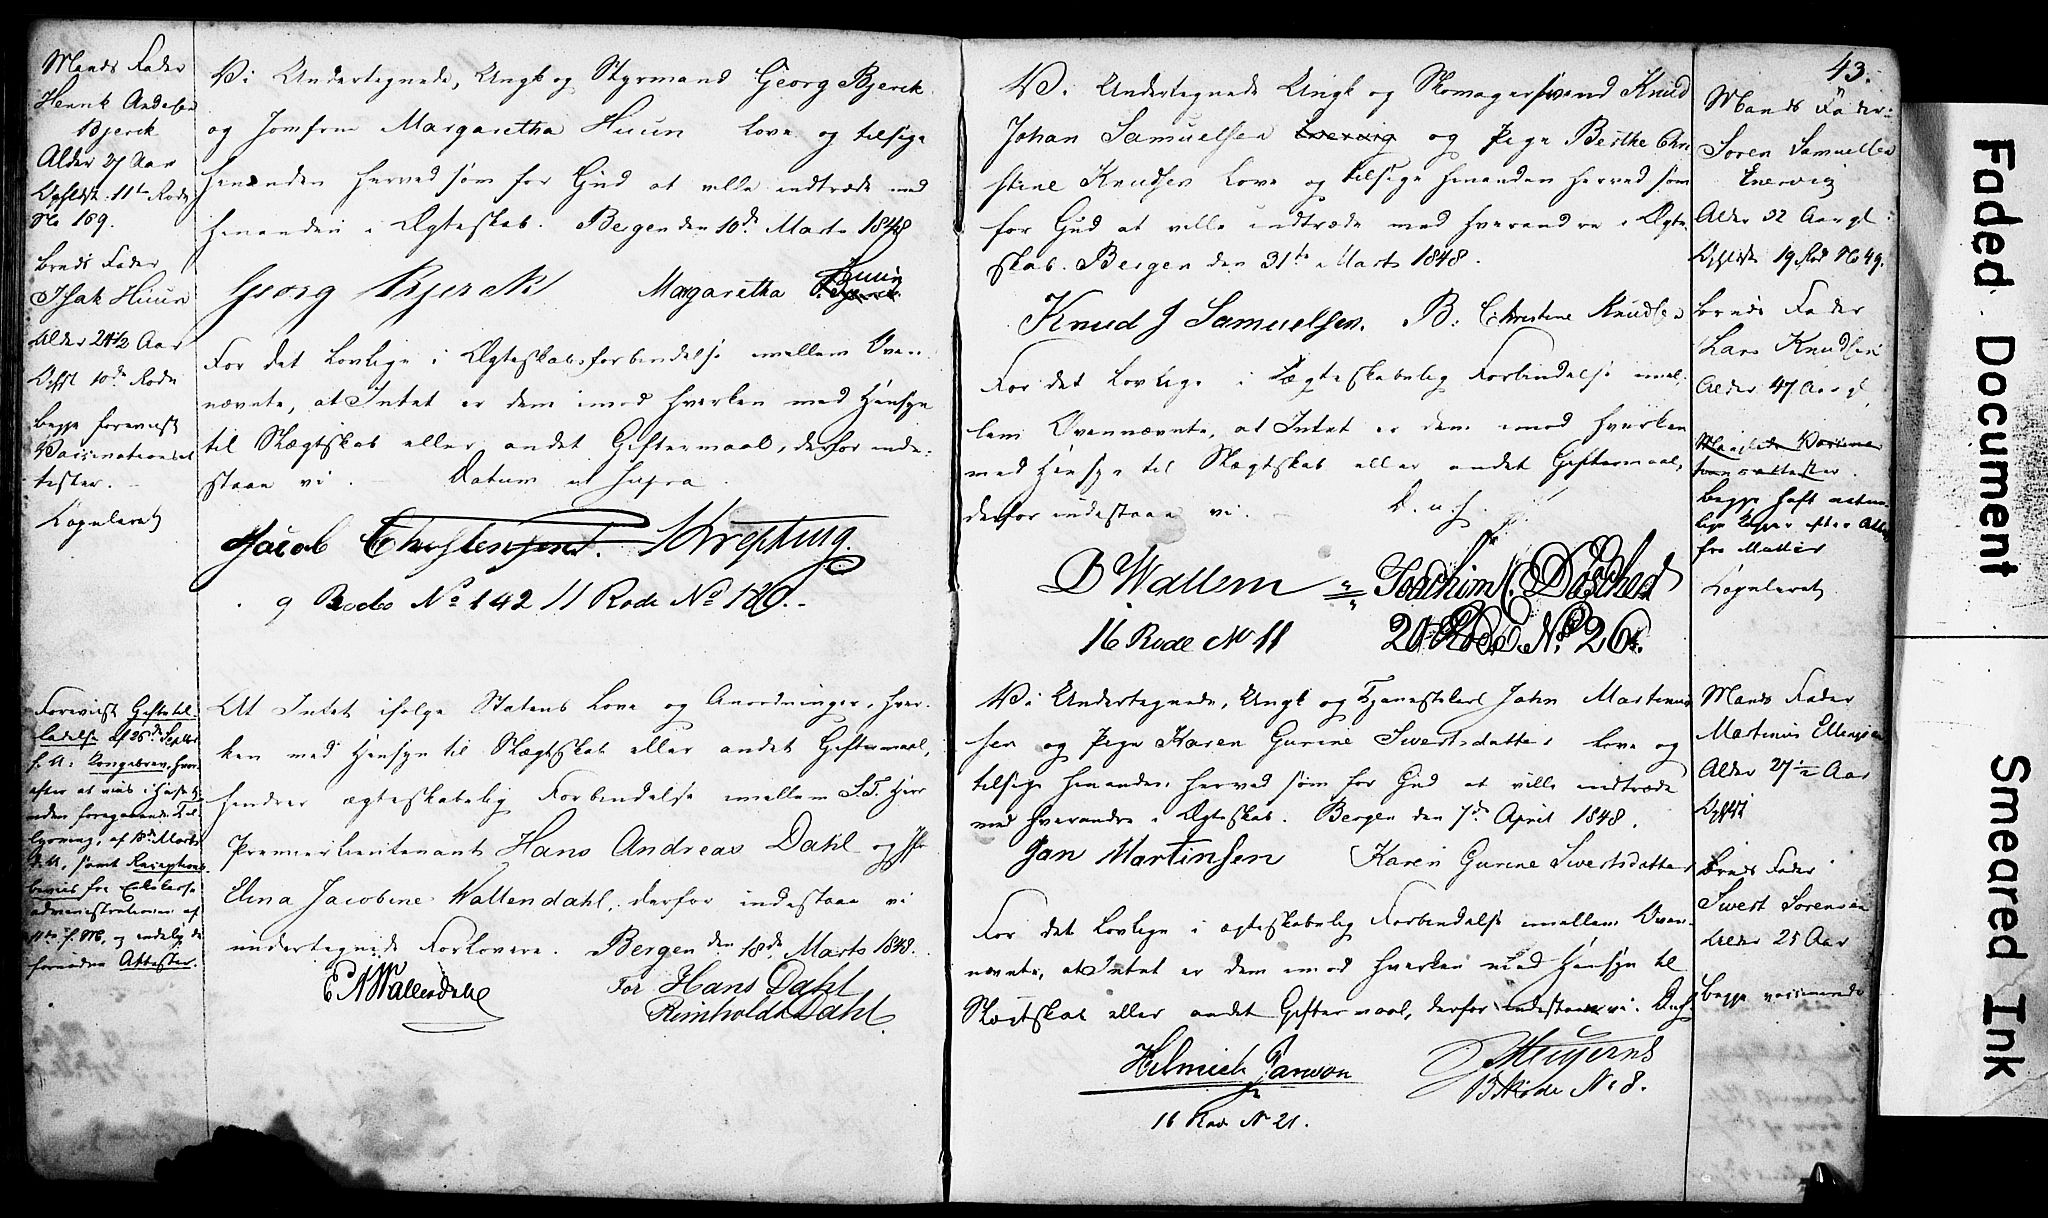 Mands Fader
Henrik Andersen
Bjerck
Alder 27 Aar
Opholdst. 11te Rode
No 169.
Bruds Fader
Isak Huun
Alder 24½ Aar
10de Rode
begge foreviist
Vaccinationsat
tester.
Copuleret
Vi Undertegnede, Ungk og Styrmand Georg Bjerck
og Jomfrue Margaretha Huun love og tilsige
hinanden herved som for Gud at ville indtræde med
hinanden i Ægteskab. Bergen den 10de Marts 1848
Georg Bjerck Margaretha Huun
For det Lovlige i Ægteskabsforbindelse imellem Oven-
nævnte, at Intet er dem imod hverken med Hensyn
til Slægtskab eller andet Giftermaal, derfor inde-
staae vi. Datum ut supra.
Jacob Christensen
9 Rode No 142 11 Rode No 180.
Foreviist Gifte til
ladelse af 26de Septbr
f. A: Kongebrev, hvor-
efter at viis i Huset
uden foregaaende Til-
lysning, af 18de Marts
d. A, samt Receptions
beviis fra Enkekasse
administrationen af
11te f. M, og endelig de
fornødne Attester.
At Intet ifølge Statens Love og Anordninger, hver-
ken med Hensyn til Slægtskab eller andet Giftermaal,
hindrer ægteskabelig Forbindelse imellem S.T. Herr
Premierlieutenant Hans Andreas Dahl og Jfr
Elina Jacobine Wallendahl, derfor indestaae vi
undertegnede Forlovere. Bergen den 18de Marts 1848.
Wallendahl For Hans Dahl
Reinholdt Dahl
43.
Vi Undertegnede Ungk og Skomagersvend Knud
Johan Samuelsen og Pige Berthe Chri
stine Knudsen love og tilsige hinanden herved som
for Gud at ville indtræde med hverandre i Ægte-
skab. Bergen den 31te Marts 1848.
Knud J Samuelsen. B. Christine Knudsen
For det Lovlige i Ægteskabelig Forbindelse imel-
lem Ovennævnte, at Intet er dem imod hverken
med Hensyn til Slægtskab eller andet Giftermaal,
derfor indestaae vi. D. u. s.
D Wallem Joachim
16 Rode No 11 20 Rode No 26.
Mands Fader
Soren Samuelsen
Alder 32 Aar gl
19 Rode No 49.
Bruds Fader
Lars Knudsen
Alder 47 Aar gl
begge haft naturn-
lige Kopper efter Attest
fra Møller
Copuleret
Vi Undertegnede, Ungk og Tjenestekarl John Martinus
sen og Pige Karen Gurine Swertsdatter love og
tilsige hinanden herved som for Gud at ville indtræde
med hverandre i Ægteskab. Bergen den 7de April 1848.
Jan Martinsen Karen Gurine Swertsdatter
For det Lovlige i ægteskabelig Forbindelse imellem Oven-
nævnte, at Intet er dem imod hverken med Hensyn til
Slægtskab eller andet Giftermaal, derfor indestaae vi. Dus
Helmich Janson
13 Rode No 8.
16 Rod N 21.
Mands Fader
Martinus Ellingsen
Alder 27½ Aar
Bruds Fader
Swert Sorensen
Alder 25 Aar
begge vaccinerede
Faded Document
Smeared Ink